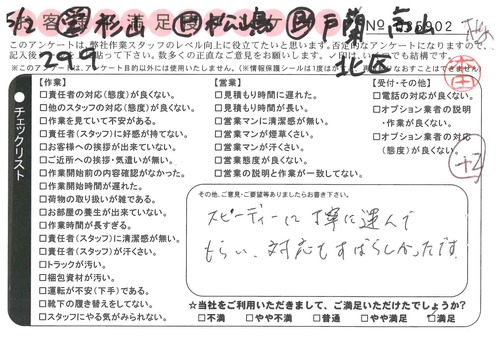 5/2 ㊂ 杉山 松嶋 戸蘭 南山
お客様満足度アンケート No 036902
このアンケートは、弊社作業スタッフのレベル向上に役立てたいと思います。否定的なアンケートになりますので、
299 北区
※このアンケートは、アンケート目的以外には使用いたしません。
チェックリスト
【作業】
□責任者の対応(態度)が良くない。
□他のスタッフの対応(態度)が良くない。
□作業を見ていて不安がある。
□責任者(スタッフ)に好感が持てない。
□お客様への挨拶が出来ていない。
□ご近所への挨拶・気遣いが無い。
□作業開始前の内容確認がなかった。
□作業開始時間が遅れた。
□荷物の取り扱いが雑である。
□お部屋の養生が出来ていない。
□作業時間が長すぎる。
□責任者(スタッフ)に清潔感が無い。
□責任者(スタッフ)が汗くさい。
□トラックが汚い。
□梱包資材が汚い。
□運転が不安(下手)である。
□靴下の履き替えをしてない。
□スタッフにやる気がみられない。
【営業】
□見積もり時間に遅れた。
□見積もり時間が長い。
□営業マンに清潔感が無い。
□営業マンが煙草くさい。
□営業マンが汗くさい。
□営業態度が良くない。
□営業の説明と作業が一致してない。
【受付・その他】
□電話の対応が良くない。
□オプション業者の説明
・作業が良くない。
□オプション業者の対応
(態度)が良くない。
その他、ご意見・ご要望等ありましたらお書き下さい。
スピーディーに丁寧に運んで
もらい、対応もすばらしかったです
☆当社をご利用いただきまして、ご満足いただけたでしょうか?
□不満 □やや不満 □普通 □やや満足 ☑満足